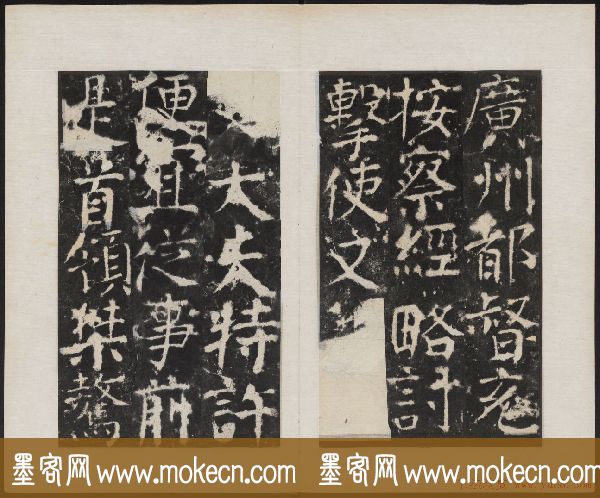 廣州都督充
按察經略討
擊使文
大夫特許
便宜從事前
是首領桀驁
墨客网 www.mokecn.com
墨客网 www.mokecn.com